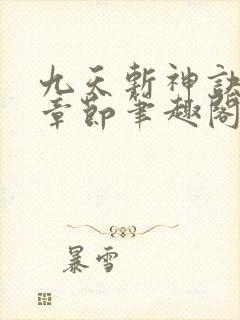 九天斩神訣
章節笔趣閣
暴雪